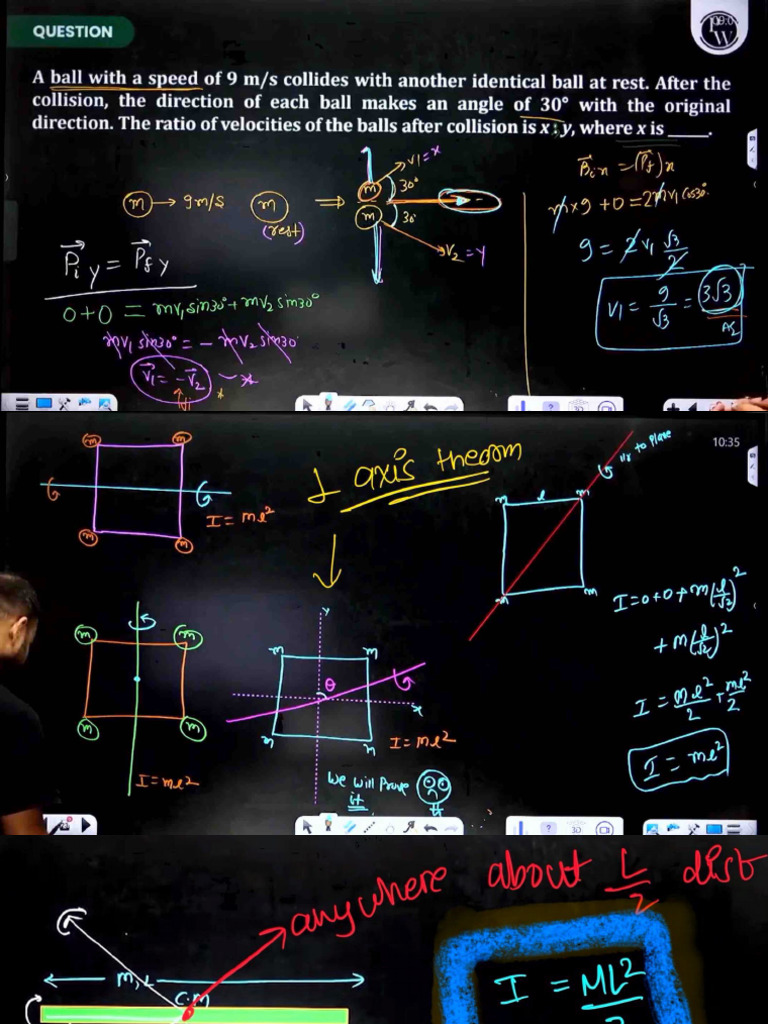 QUESTION
A ball with a speed of 9 m/s collides with another identical ball at rest. After the
collision, the direction of each ball makes an angle of 30° with the original
direction. The ratio of velocities of the balls after collision is x : y, where x is ____.
m → 9m/s m ⇒ m 30° v1 = x
(rest) m 30 v2 = y
P⃗i y = P⃗f y
0+0 = mv1 sin30° + mv2 sin30°
mv1 sin30° = - mv2 sin30°
v⃗1 = -v⃗2
(P⃗f)x
m×9 + 0 = 2mv1 cos30°
9 = 2v1 √3/2
v1 = 9/√3 = 3√3
10:35
⊥ axis theorem
m m
m m
I = ml²
m m
m m
I = ml²
y
m m
θ
x
m m
I = ml²
We will Prove
it
m l m
m m
to Plane
I = 0+0+m(l/√2)²
+ m(l/√2)²
I = ml²/2 + ml²/2
I = ml²
anywhere about L/2 dist
m, L
C.M
I = ML²